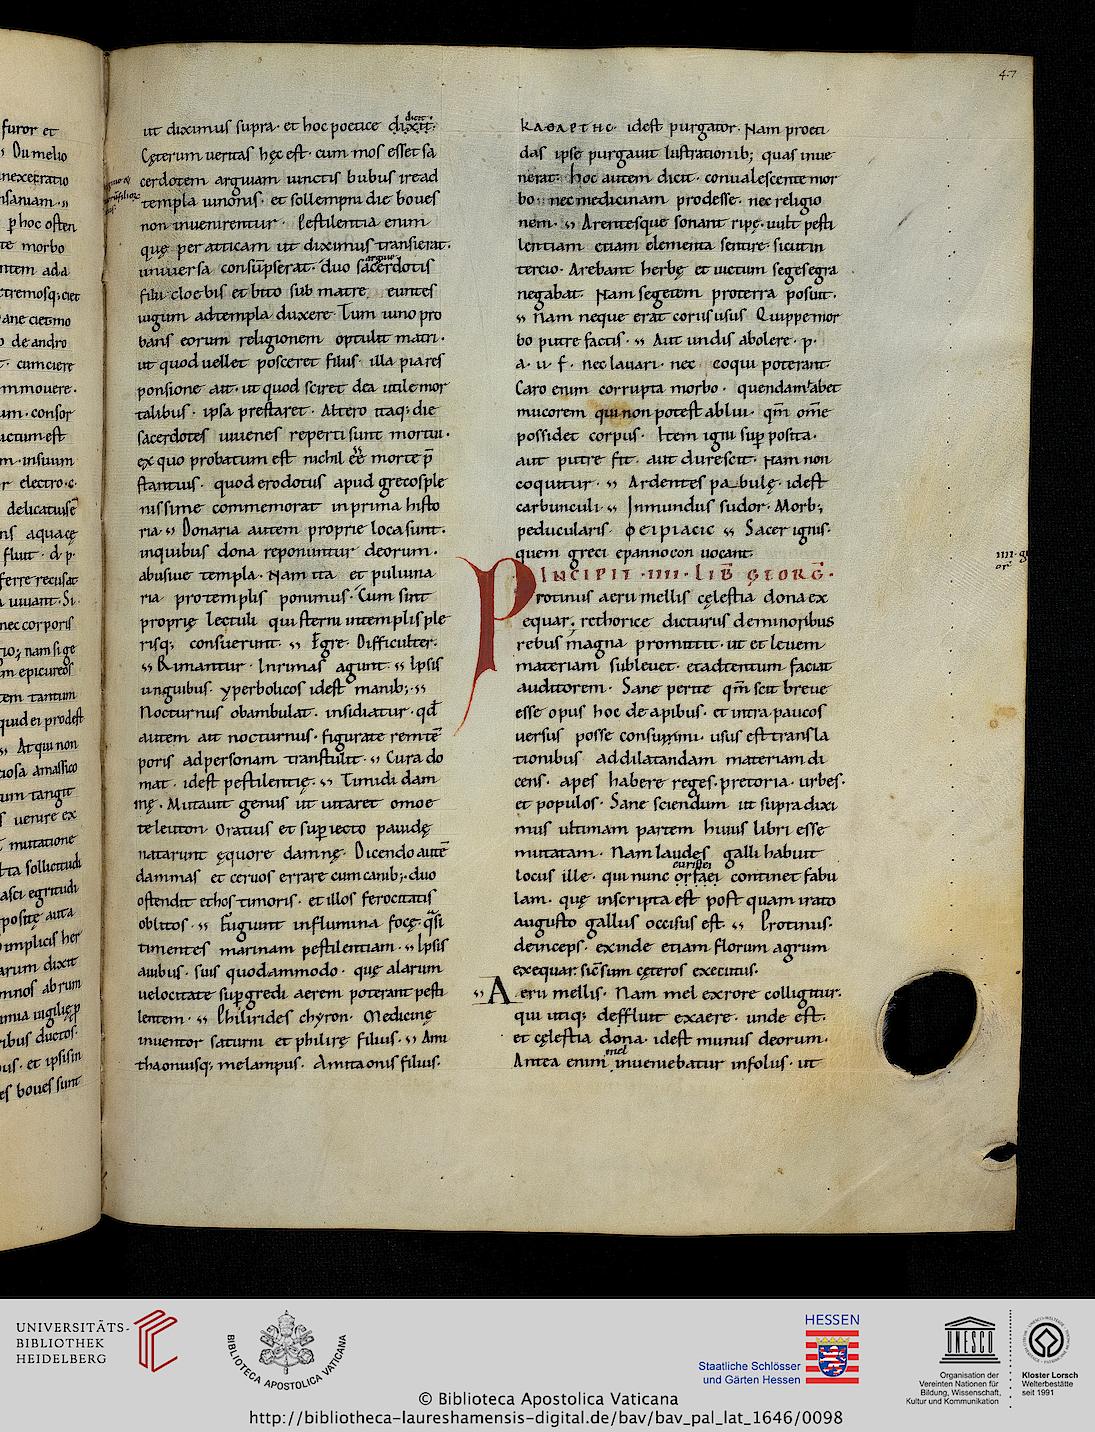 47
ut diximus supra· et hoc poetice dixit·
dicit·
Cęterum ueritas hęc est· cum mos esset sa
cerdotem argiuam iunctis bubus ire ad
templa iunonis· et sollempni die boues
non inuenirentur· Pestilentia enim
quę per atticam ut diximus transierat·
uniuersa consūpserat· duo sacerdotis
argiuę
filii cloebis et bito sub matre euntes
iugum ad templa duxere· Tum iuno pro
bans eorum religionem optulit matri·
ut quod uellet posceret filiis· illa pia res
ponsione ait· ut quod sciret dea utile mor
talibus· ipsa prestaret· Altero itaq; die
sacerdotes iuuenes reperti sunt mortui·
ex quo probatum est nichil eē morte p̄
stantius· quod erodotus apud grecos ple
nissime commemorat in prima histo
ria· Donaria autem proprie loca sunt·
in quibus dona reponuntur deorum·
abusiue templa· Nam ita et puluina
ria pro templis ponimus· Cum sint
proprię lectuli qui sterni in templis ple
risq; consuerunt· Egre· Difficulter·
Rimantur· In rimas agunt· Ipsis
unguibus· yperbolicos idest manib;·
Nocturnus obambulat· insidiatur· qđ
autem ait nocturnus· figurate rem tē
poris ad personam transtulit· Cura do
mat· idest pestilentię· Timidi dam
mę· Mutauit genus ut uitaret omoe
teleuton· Oratius et sup iecto pauidę
natarunt ęquore damnę· Dicendo autē
dammas et ceruos errare cum canib;· duo
ostendit et hos timoris· et illos ferocitatis
oblitos· Fugiunt in flumina focę· q̄si
timentes marinam pestilentiam· Ipsis
auibus· suis quodammodo· quę alarum
uelocitate supgredi aerem poterant pesti
lentem· Philirides chyron· Medicinę
inuentor saturni et philirę filius· Ami
thaoniusq; melampus· Amitaonis filius·
ΚΑΘΑΡΤΗC· idest purgator· Nam proeti
das ipse purgauit lustrationib; quas inue
nerat· hoc autem dicit· conualescente mor
bo· nec medicinam prodesse· nec religio
nem· Arentesque sonant ripę· uult pesti
lentiam etiam elementa sentire· sicut in
tercio· Arebant herbę et uictum seges egra
negabat· Nam segetem pro terra posuit·
Nam neque erat coriis usus Quippe mor
bo putre factis· Aut undis abolere· p·
a· u· f· nec lauari· nec coqui poterant·
Caro enim corrupta morbo· quendam tabet
mucorem qui non potest ablui· qm̄ om̄e
possidet corpus· Item igni sup posita·
aut putre fit· aut durescit· Nam non
coquitur· Ardentes pabulę· idest
carbunculi Inmundus sudor· Morb;
peducularis· ΦΘΙΡΙΑCΙC Sacer ignis·
quem greci epannocon uocant·
INCIPIT ·IIII· LIB̄ GEORḠ·
Protinus aerii mellis cęlestia dona ex
equar· rethorice dicturus de minoribus
rebus magna promittit· ut et leuem
materiam subleuet· et adtentum faciat
auditorem· Sane perite qm̄ scit breue
esse opus hoc de apibus· et intra paucos
uersus posse consummi· usus est transla
tionibus ad dilatandam materiam di
cens· apes habere reges· pretoria· urbes·
et populos· Sane sciendum ut supra dixi
mus ultimam partem huius libri esse
mutatam· Nam laudes galli habuit
locus ille· qui nunc orfaei continet fabu
lam· quę inscripta est post quam irato
augusto gallus occisus est· Protinus·
deinceps· exinde etiam florum agrum
exequar· sic̄ sum cęteros executus·
Aerii mellis· Nam mel ex rore colligitur·
qui utiq; deffluit ex aere· unde est·
et cęlestia dona· idest munus deorum·
mel
Antea enim inueniebatur in folus· ut
UNIVERSITÄTS-
BIBLIOTHEK
HEIDELBERG
BIBLIOTECA APOSTOLICA VATICANA
HESSEN
Staatliche Schlösser
und Gärten Hessen
UNESCO
Organisation der
Vereinten Nationen für
Bildung, Wissenschaft,
Kultur und Kommunikation
Kloster Lorsch
Welterbestätte
seit 1991
© Biblioteca Apostolica Vaticana
http://bibliotheca-laureshamensis-digital.de/bav/bav_pal_lat_1646/0098